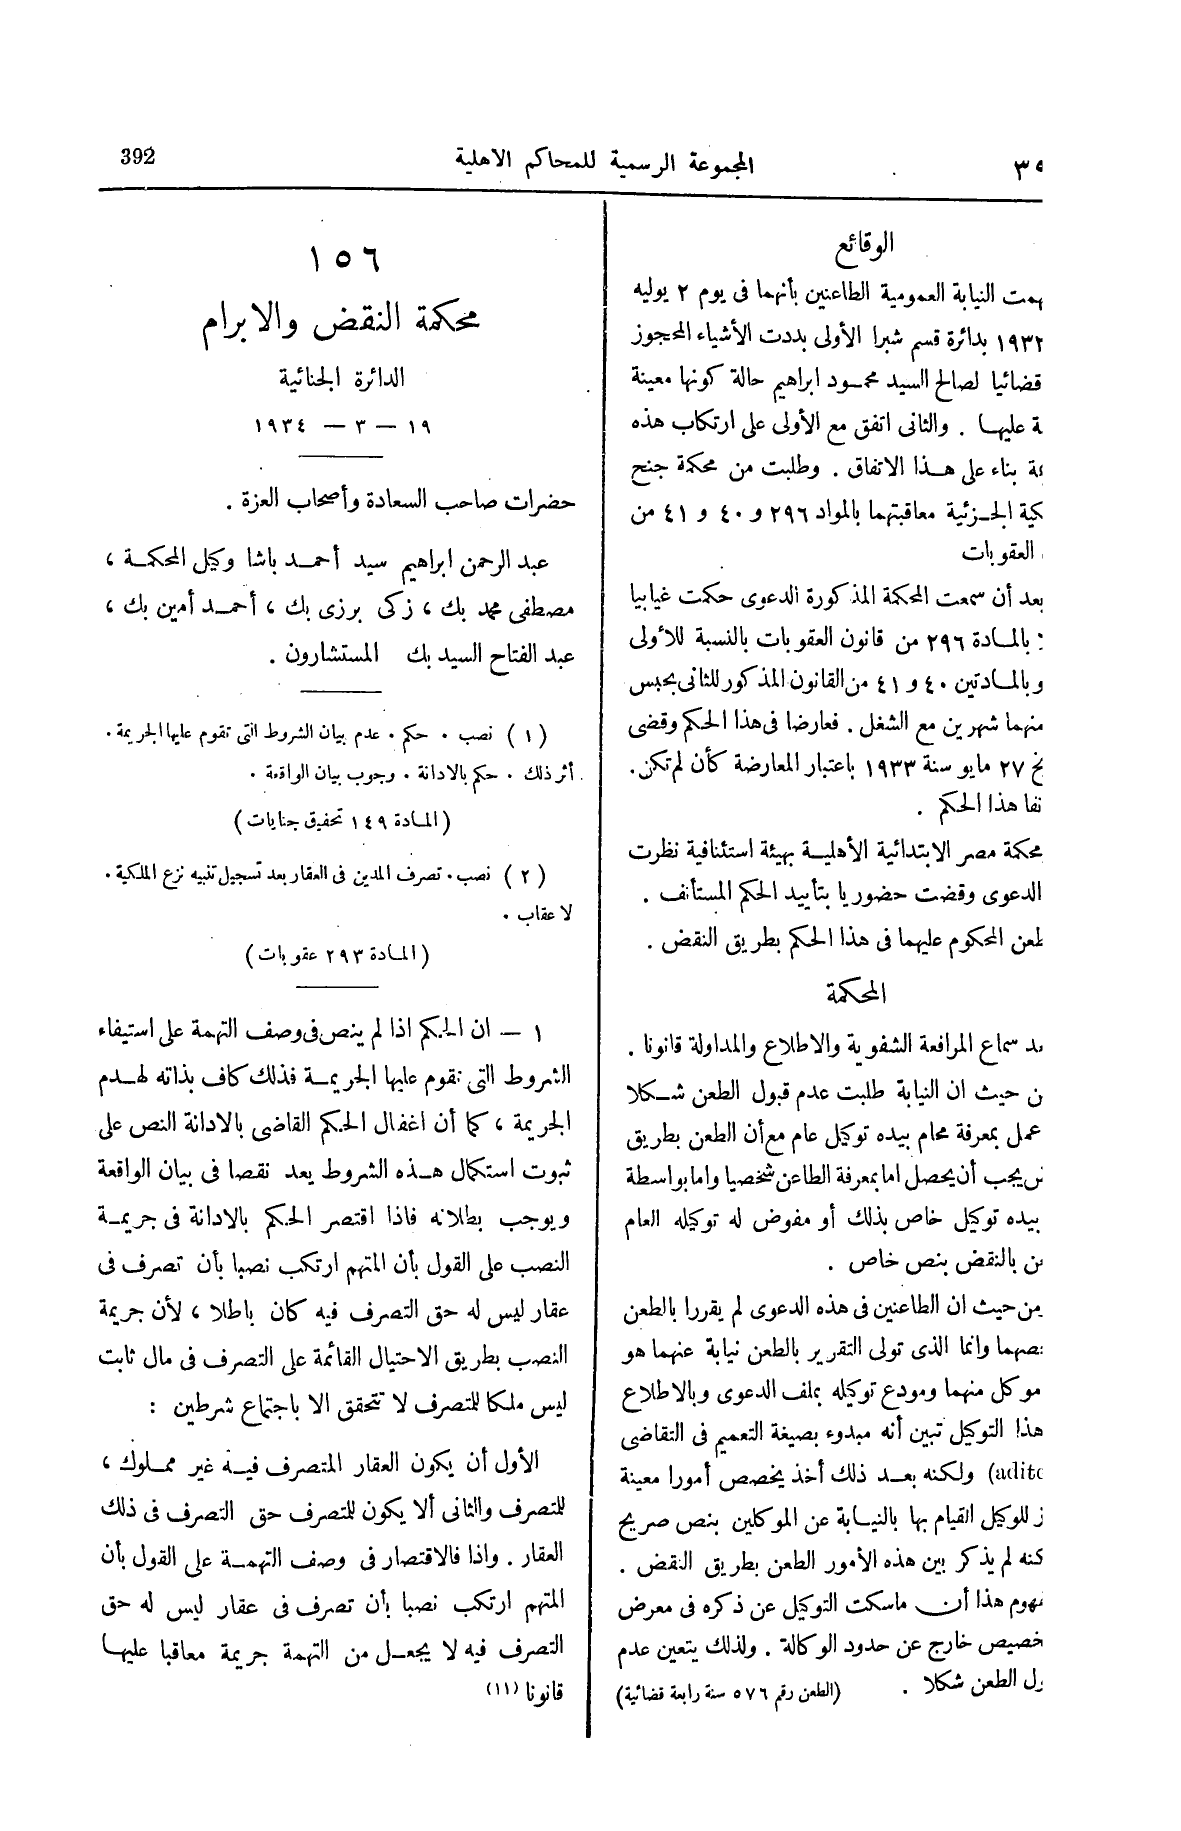 392
المجموعة الرسمية للمحاكم الاهلية
الوقائع
النيابة العمومية الطاعنين بأنهما فى يوم ٢ يوليه
بدائرة قسم شبرا الأولى بددت الأشياء المحجوز
قضائيا لصالح السيد محمود ابراهيم حالة كونها معينة
عليها . والثانى اتفق مع الأولى على ارتكاب هذه
بناء على هذا الاتفاق . وطلبت من محكمة جنح
الجزئية معاقبتهما بالمواد ٢٩٦ و ٤٠ و ٤١ من
العقوبات
بعد أن سمعت المحكمة المذكورة الدعوى حكمت غيابيا
بالمادة ٢٩٦ من قانون العقوبات بالنسبة للأولى
وبالمادتين ٤٠ و ٤١ من القانون المذكور للثانى بحبس
منهما شهرين مع الشغل . فعارضا فى هذا الحكم وقضى
٢٧ مايو سنة ١٩٣٣ باعتبار المعارضة كأن لم تكن .
هذا الحكم .
محكمة مصر الابتدائية الأهلية بهيئة استئنافية نظرت
الدعوى وقضت حضوريا بتأييد الحكم المستأنف .
طعن المحكوم عليهما فى هذا الحكم بطريق النقض .
المحكمة
سماع المرافعة الشفوية والاطلاع والمداولة قانونا .
حيث ان النيابة طلبت عدم قبول الطعن شكلا
عمل بمعرفة محام بيده توكيل عام مع أن الطعن بطريق
يجب أن يحصل اما بمعرفة الطاعن شخصيا واما بواسطة
بيده توكيل خاص بذلك أو مفوض له توكيله العام
بالنقض بنص خاص .
حيث ان الطاعنين فى هذه الدعوى لم يقررا بالطعن
وانما الذى تولى التقرير بالطعن نيابة عنهما هو
موكل منهما ومودع توكيله بملف الدعوى وبالاطلاع
هذا التوكيل تبين أنه مبدوء بصيغة التعميم فى التقاضى
ولكنه بعد ذلك أخذ يخصص أمورا معينة
للوكيل القيام بها بالنيابة عن الموكلين بنص صريح
لم يذكر بين هذه الأمور الطعن بطريق النقض .
هذا أن ماسكت التوكيل عن ذكره فى معرض
خارج عن حدود الوكالة . ولذلك يتعين عدم
الطعن شكلا . (الطعن رقم ٥٧٦ سنة رابعة قضائية)
١٥٦
محكمة النقض والابرام
الدائرة الجنائية
١٩ — ٣ — ١٩٣٤
حضرات صاحب السعادة وأصحاب العزة .
عبد الرحمن ابراهيم سيد أحمد باشا وكيل المحكمة ،
مصطفى محمد بك ، زكى برزى بك ، أحمد أمين بك ،
عبد الفتاح السيد بك المستشارون .
(١) نصب . حكم . عدم بيان الشروط التى تقوم عليها الجريمة .
أثر ذلك . حكم بالادانة . وجوب بيان الواقعة .
(المادة ١٤٩ تحقيق جنايات)
(٢) نصب . تصرف المدين فى العقار بعد تسجيل تنبيه نزع الملكية .
لا عقاب .
(المادة ٢٩٣ عقوبات)
١ — ان الحكم اذا لم ينص فى وصف التهمة على استيفاء
الشروط التى تقوم عليها الجريمة فذلك كاف بذاته لهدم
الجريمة ، كما أن اغفال الحكم القاضى بالادانة النص على
ثبوت استكمال هذه الشروط يعد نقصا فى بيان الواقعة
ويوجب بطلانه فاذا اقتصر الحكم بالادانة فى جريمة
النصب على القول بأن المتهم ارتكب نصبا بأن تصرف فى
عقار ليس له حق التصرف فيه كان باطلا ، لأن جريمة
النصب بطريق الاحتيال القائمة على التصرف فى مال ثابت
ليس ملكا للتصرف لا تتحقق الا باجتماع شرطين :
الأول أن يكون العقار المتصرف فيه غير مملوك ،
للتصرف والثانى ألا يكون للتصرف حق التصرف فى ذلك
العقار . واذا فالاقتصار فى وصف التهمة على القول بأن
المتهم ارتكب نصبا بأن تصرف فى عقار ليس له حق
التصرف فيه لا يجعل من التهمة جريمة معاقبا عليها
قانونا (١١)